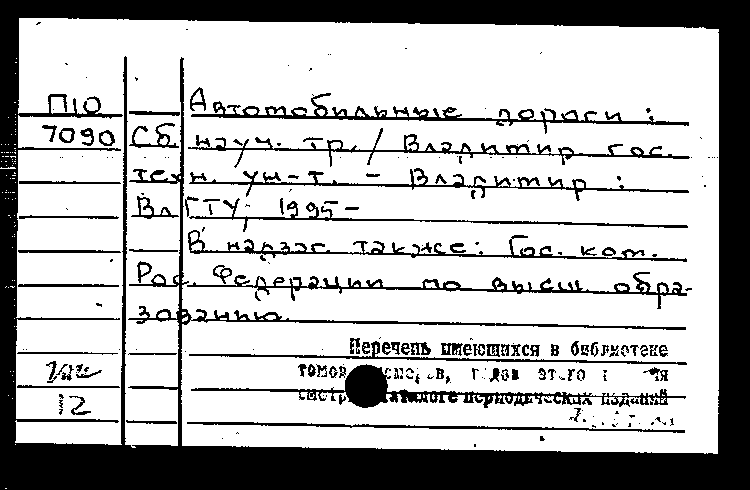 П10 Автомобильные дороги:
7090 Сб. науч. тр. / Владимир. гос.
техн. ун-т. - Владимир:
ВлГТУ, 1995-
В надзаг. также: Гос. ком.
Рос. Федерации по высш. обра-
зованию.
Перечень имеющихся в библиотеке
томов,
каталоге периодических изданий
12